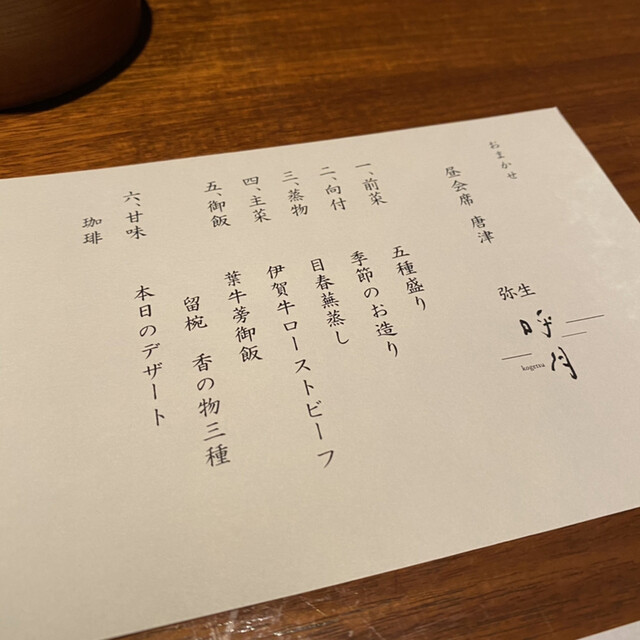 おまかせ
昼会席 唐津
弥生
kogetsu
一、前菜
五種盛り
二、向付
季節のお造り
三、蒸物
目春蕪蒸し
四、主菜
伊賀牛ローストビーフ
五、御飯
葉牛蒡御飯
留椀 香の物三種
六、甘味
本日のデザート
珈琲